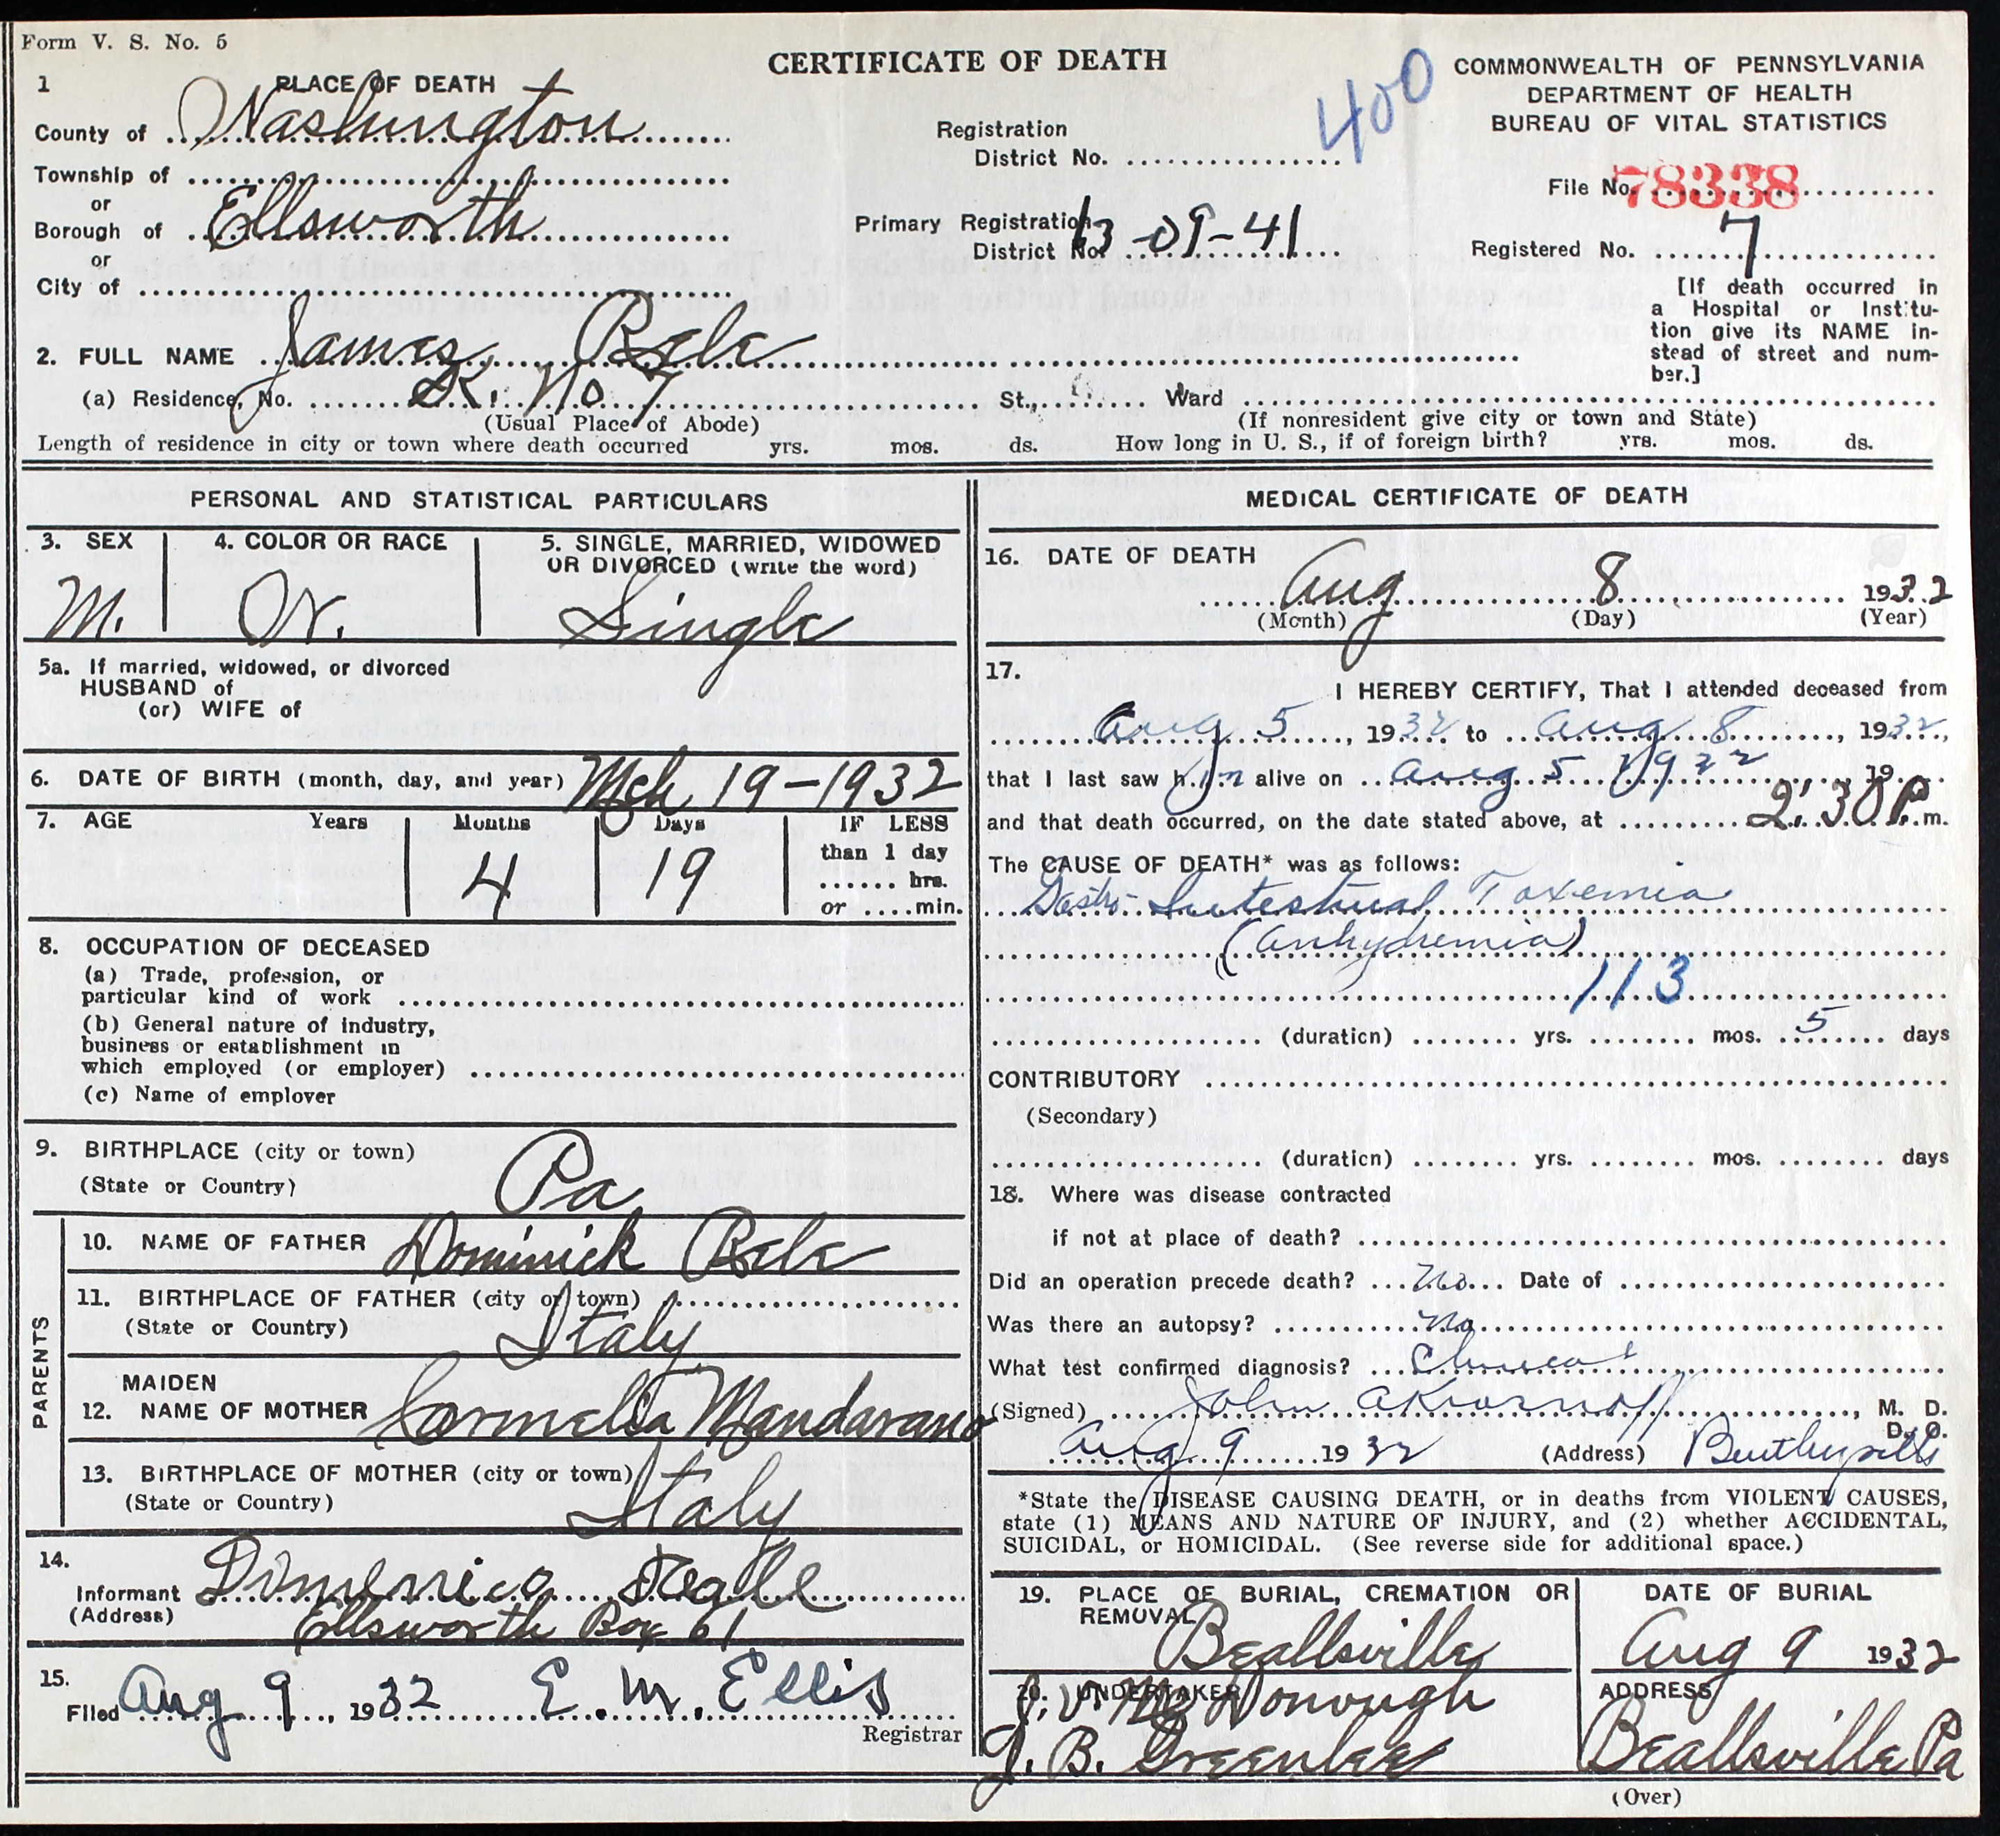 Form V. S. No. 5
CERTIFICATE OF DEATH
COMMONWEALTH OF PENNSYLVANIA
DEPARTMENT OF HEALTH
BUREAU OF VITAL STATISTICS
400
1 PLACE OF DEATH
County of Washington
Township of
or
Borough of Ellsworth
or
City of
Registration
District No.
Primary Registration
District No. 63-09-41
File No. 78338
Registered No. 7
[If death occurred in
a Hospital or Institu-
tion give its NAME in-
stead of street and num-
ber.]
2. FULL NAME James
(a) Residence, No. No 7 St., Ward
(Usual Place of Abode) (If nonresident give city or town and State)
Length of residence in city or town where death occurred yrs. mos. ds. How long in U. S., if of foreign birth? yrs. mos. ds.
PERSONAL AND STATISTICAL PARTICULARS
3. SEX 4. COLOR OR RACE 5. SINGLE, MARRIED, WIDOWED
OR DIVORCED (write the word)
M. W. Single
5a. If married, widowed, or divorced
HUSBAND of
(or) WIFE of
6. DATE OF BIRTH (month, day, and year) Mch 19-1932
7. AGE Years Months Days IF LESS
than 1 day
hrs.
or min.
4 19
8. OCCUPATION OF DECEASED
(a) Trade, profession, or
particular kind of work
(b) General nature of industry,
business or establishment in
which employed (or employer)
(c) Name of employer
9. BIRTHPLACE (city or town)
(State or Country) Pa
PARENTS
10. NAME OF FATHER Dominick
11. BIRTHPLACE OF FATHER (city or town)
(State or Country) Italy
MAIDEN
12. NAME OF MOTHER Carmelia Mandarano
13. BIRTHPLACE OF MOTHER (city or town)
(State or Country) Italy
14.
Informant Domenico
(Address) Ellsworth Box 61
15.
Filed Aug 9, 1932 E. M. Ellis
Registrar
MEDICAL CERTIFICATE OF DEATH
16. DATE OF DEATH
Aug 8 1932
(Month) (Day) (Year)
17.
I HEREBY CERTIFY, That I attended deceased from
Aug 5 1932 to Aug 8, 1932,
that I last saw him alive on Aug 5 1932 19
and that death occurred, on the date stated above, at 2:30 P. m.
The CAUSE OF DEATH* was as follows:
Gastro Intestinal Toxemia
(Anhydremia)
113
(duration) yrs. mos. 5 days
CONTRIBUTORY
(Secondary)
(duration) yrs. mos. days
18. Where was disease contracted
if not at place of death?
Did an operation precede death? No Date of
Was there an autopsy? No
What test confirmed diagnosis? Clinical
(Signed) John A , M. D.
D. O.
Aug 9 1932 (Address) Bentleyville
*State the DISEASE CAUSING DEATH, or in deaths from VIOLENT CAUSES,
state (1) MEANS AND NATURE OF INJURY, and (2) whether ACCIDENTAL,
SUICIDAL, or HOMICIDAL. (See reverse side for additional space.)
19. PLACE OF BURIAL, CREMATION OR
REMOVAL
Beallsville
DATE OF BURIAL
Aug 9 1932
20. UNDERTAKER
J. V. McDonough
J. B. Greenlee
ADDRESS
Beallsville Pa
(Over)